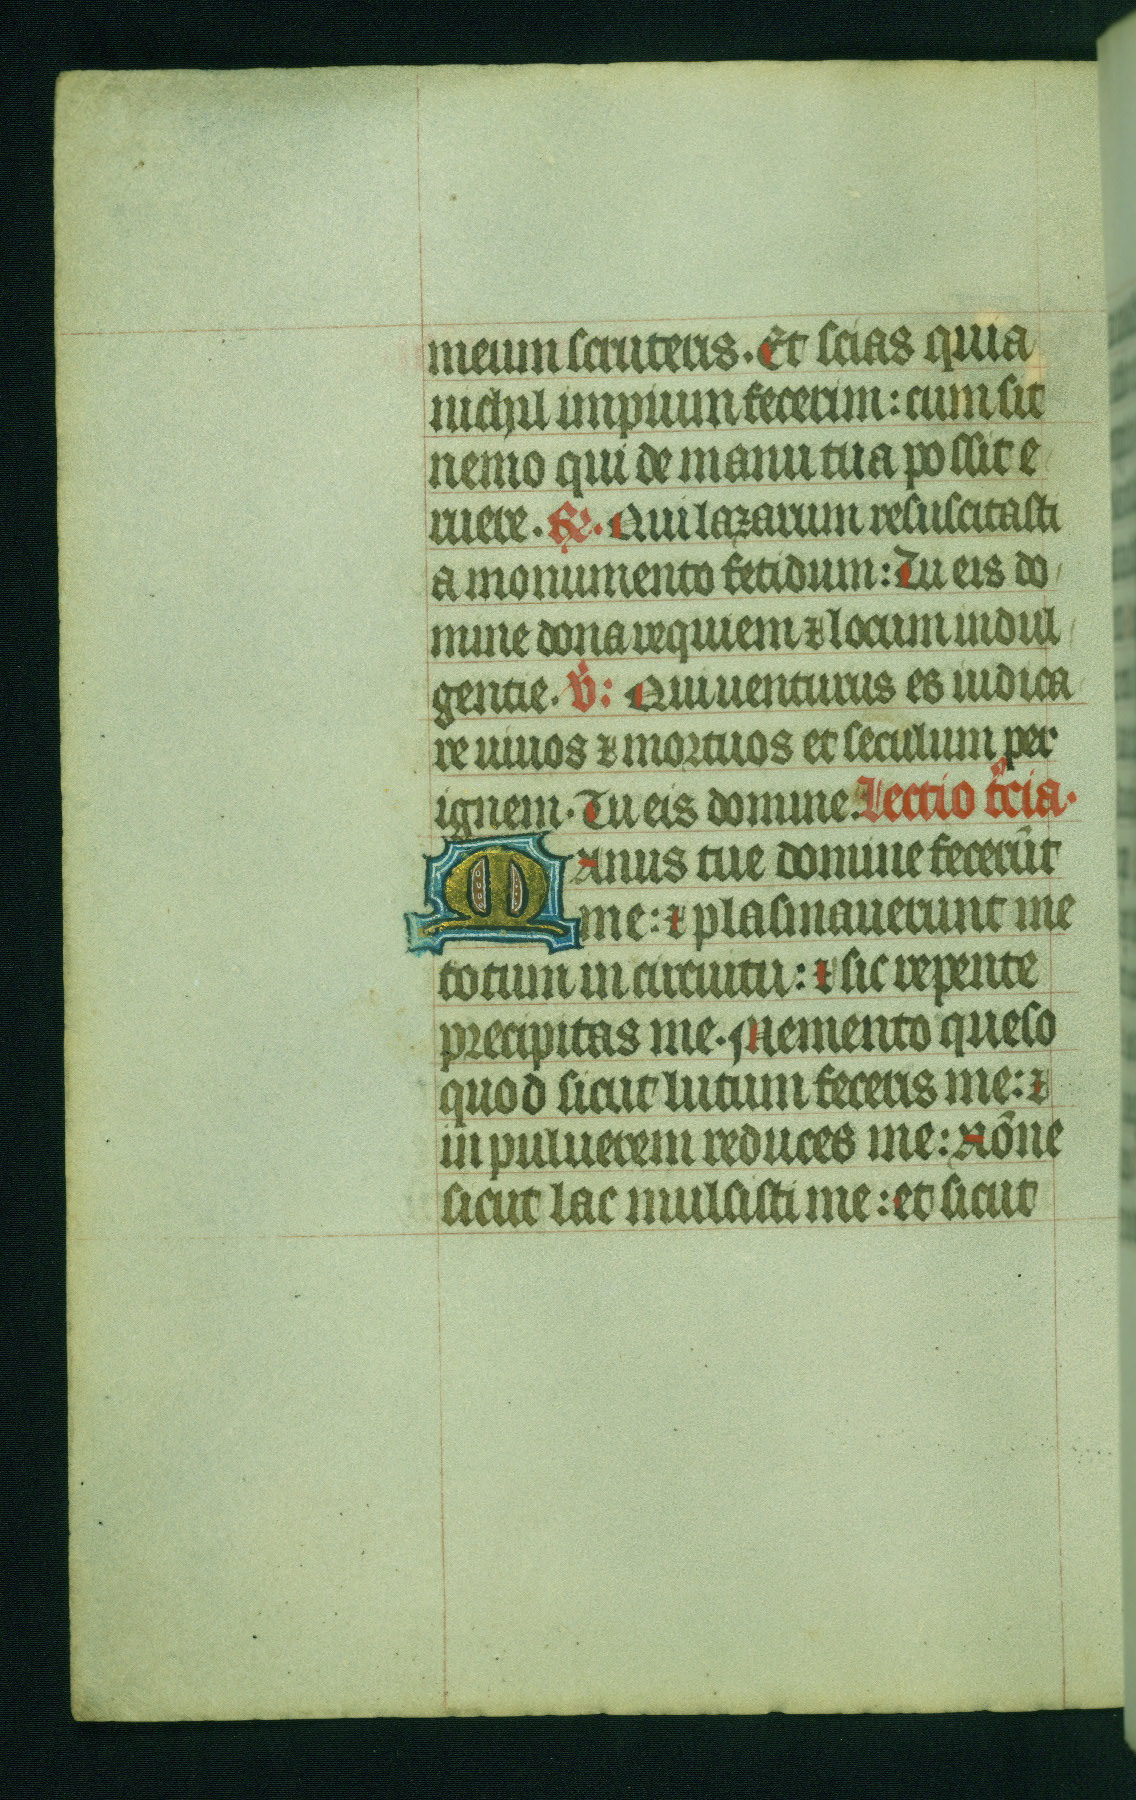 meum scruteris. Et scias quia
nichil impium fecerim: cum sit
nemo qui de manu tua possit e
ruere. R. Qui lazarum resuscitasti
a monumento fetidum: Tu eis do
mine dona requiem ⁊ locum indul
gentie. V: Qui uenturus es iudica
re uiuos ⁊ mortuos et seculum per
ignem. Tu eis domine. Lectio t̃cia.
Manus tue domine fecerūt
me: ⁊ plasmauerunt me
totum in circuitu: ⁊ sic repente
precipitas me. Memento queso
quod sicut lutum feceris me: ⁊
in puluerem reduces me: Nōne
sicut lac mulsisti me: et sicut